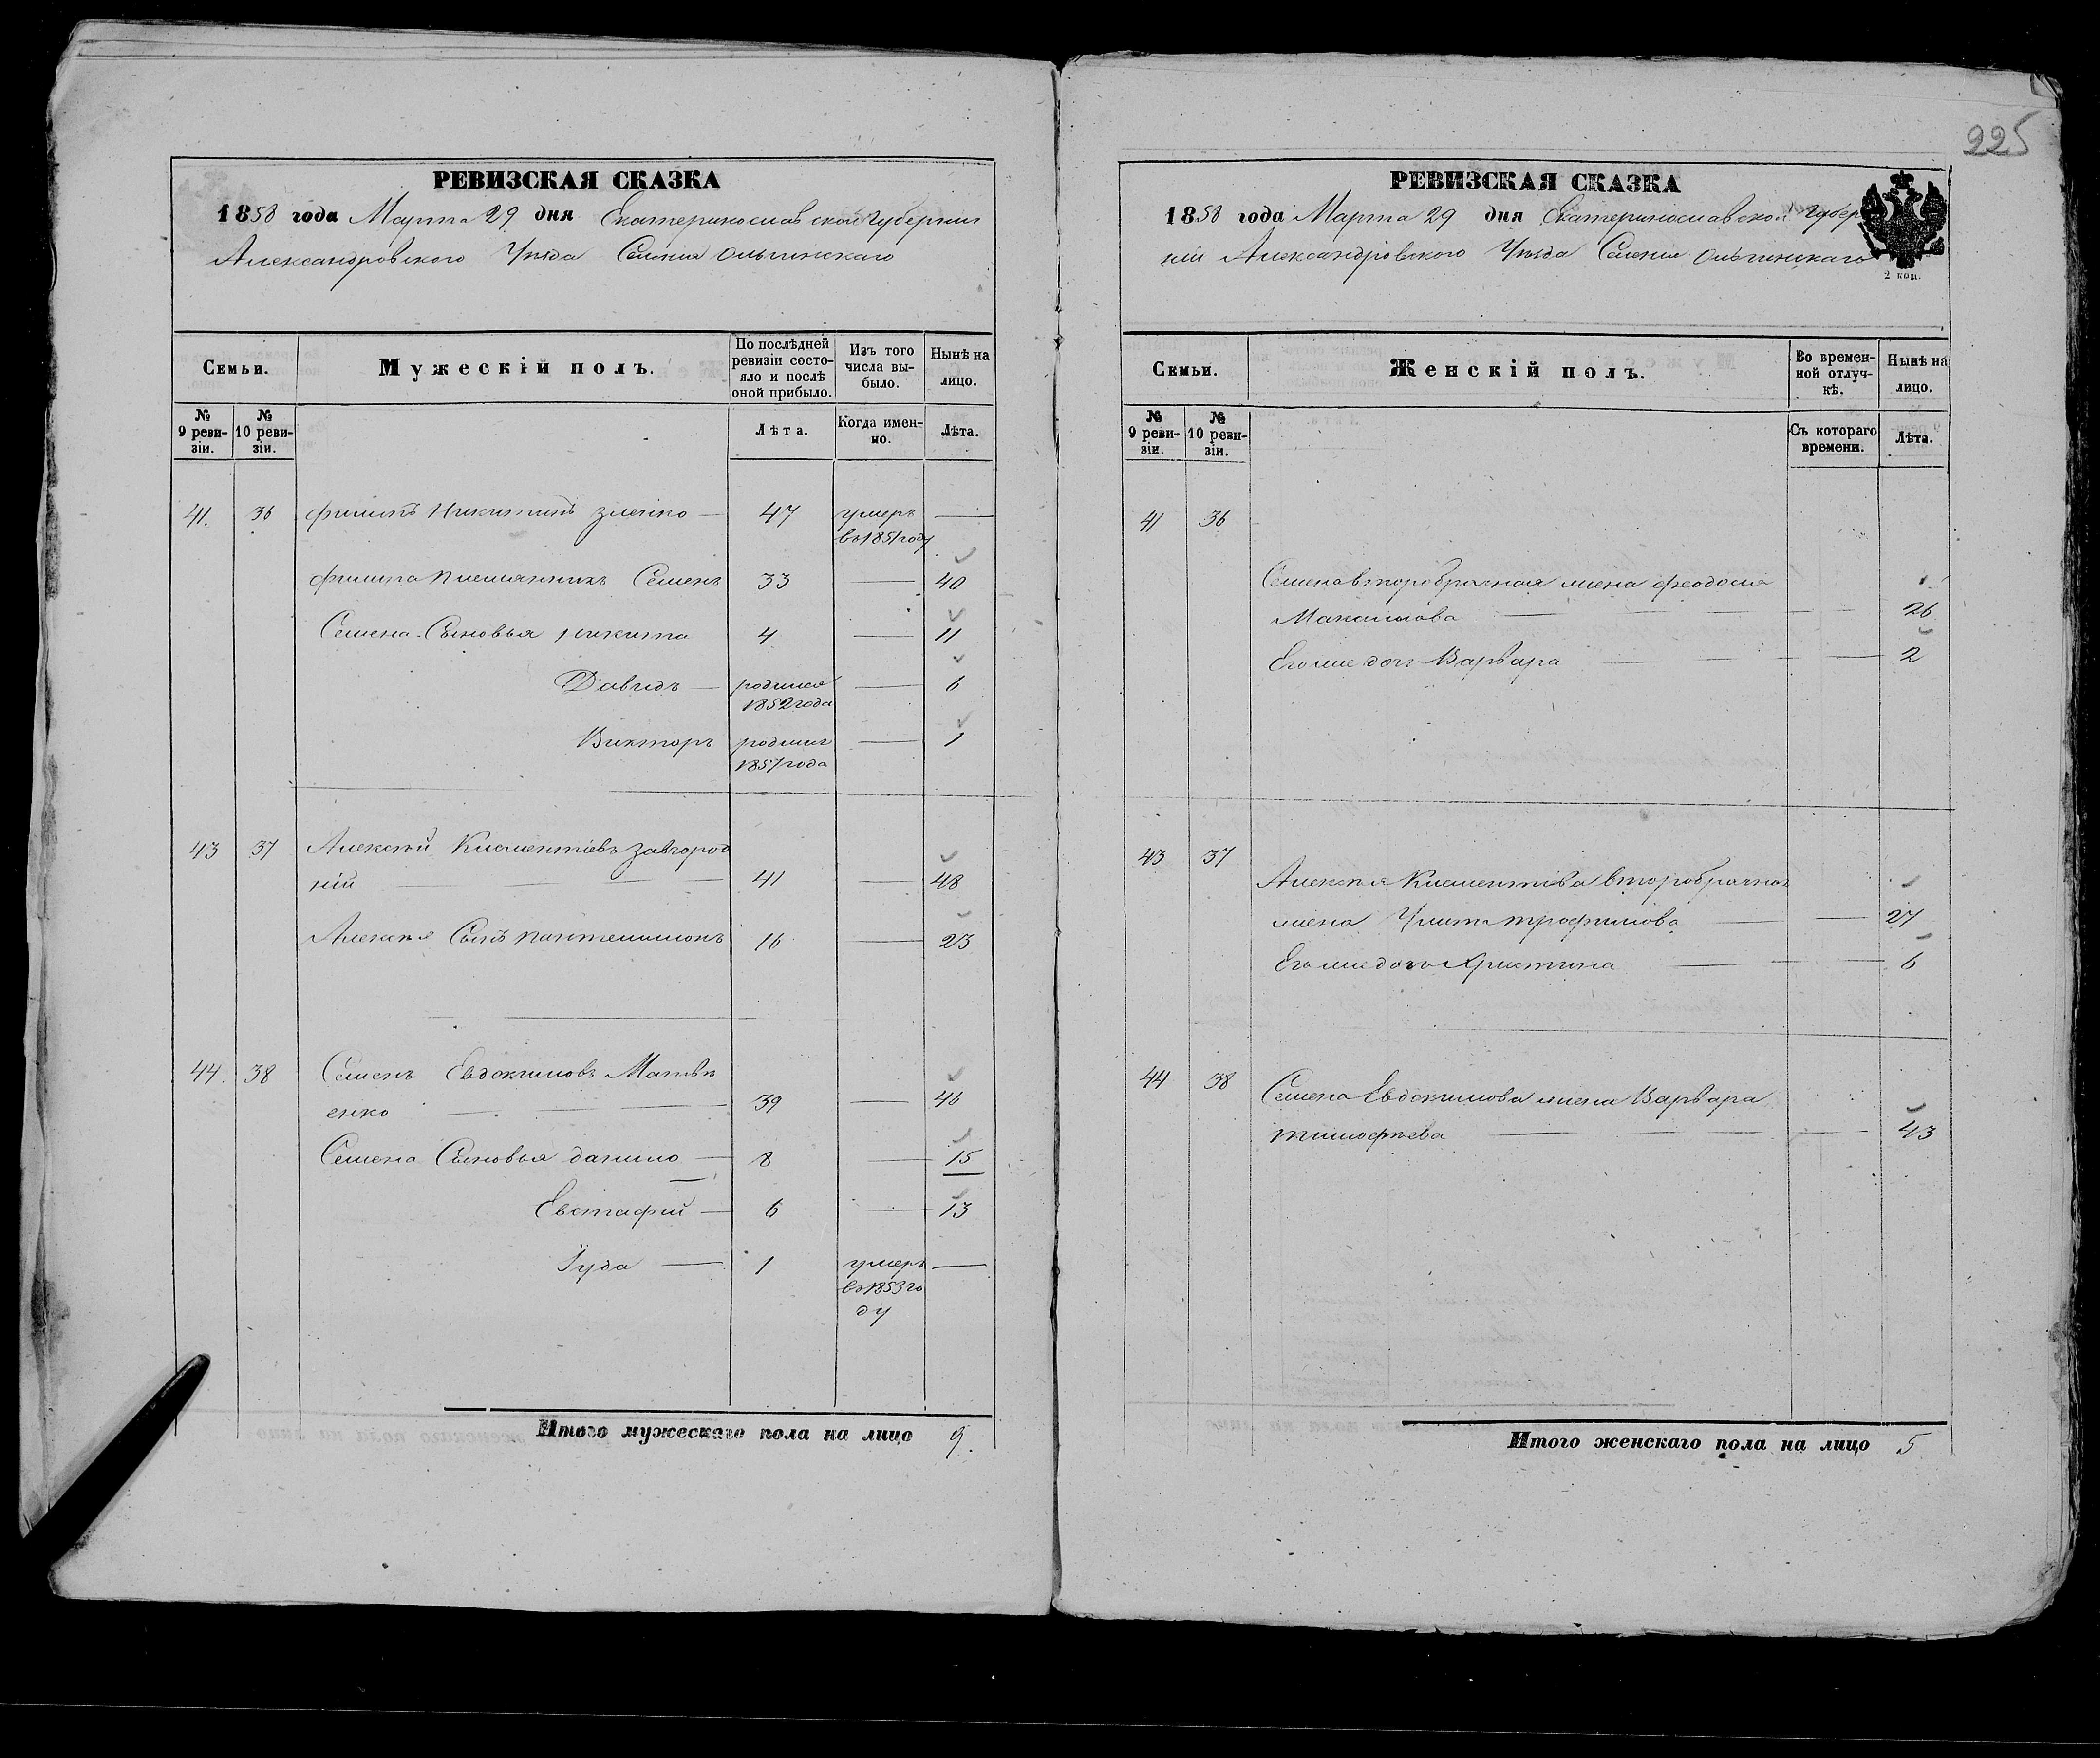 РЕВИЗСКАЯ СКАЗКА
1858 года Марта 29 дня Екатеринославской губернии
Александровского Уѣзда Селения Ольгинскаго
Семьи.
Мужескій полъ.
По послѣдней ревизіи состояло и послѣ оной прибыло.
Изъ того числа выбыло.
Нынѣ на лицо.
№ 9 ревизіи.
№ 10 ревизіи.
Лѣта.
Когда именно.
Лѣта.
41. 36 Филипъ Никитинъ Зленко — 47 умеръ —
въ 1851 году
Филипа племянникъ Семенъ 33 — 40
Семена Сыновья Никита 4 — 11
Давидъ — родился — 6
1852 года
Викторъ родился — 1
1857 года
43 37 Алексѣй Климентіевъ Завгород
ній — 41 — 48
Алексѣя Сынъ Пантелимонъ 16 — 23
44. 38 Семенъ Евдокимовъ Матвѣ
енко — 39 — 46
Семена Сыновья Данило — 8 — 15
Евстафій — 6 — 13
Іуда — 1 умеръ —
въ 1853 го
ду
Итого мужескаго пола на лицо 9.
225
РЕВИЗСКАЯ СКАЗКА
1858 года Марта 29 дня Екатеринославской Губер
ніи Александровского Уѣзда Селения Ольгинскаго
2 коп.
Семьи.
Женскій полъ.
Во временной отлучкѣ.
Нынѣ на лицо.
№ 9 ревизіи.
№ 10 ревизіи.
Съ котораго времени.
Лѣта.
41 36
Семена второбрачная жена Феодосия
Максимова — 26
Его же дочь Варвара — 2
43 37
Алексѣя Климентіева второбрачная
жена Улита Трофимова — 27
Его же дочь Христина — 6
44 38 Семена Евдокимова жена Варвара
Тимофѣева — 43
Итого женскаго пола на лицо 5